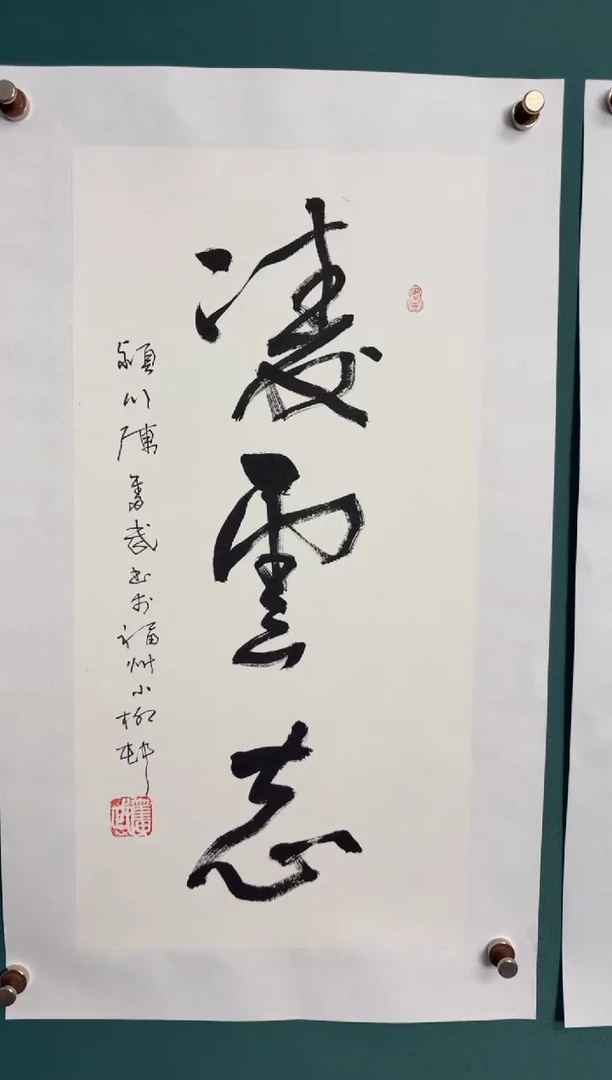 凌雲志
潁川陳奮武書於福州小柳邨